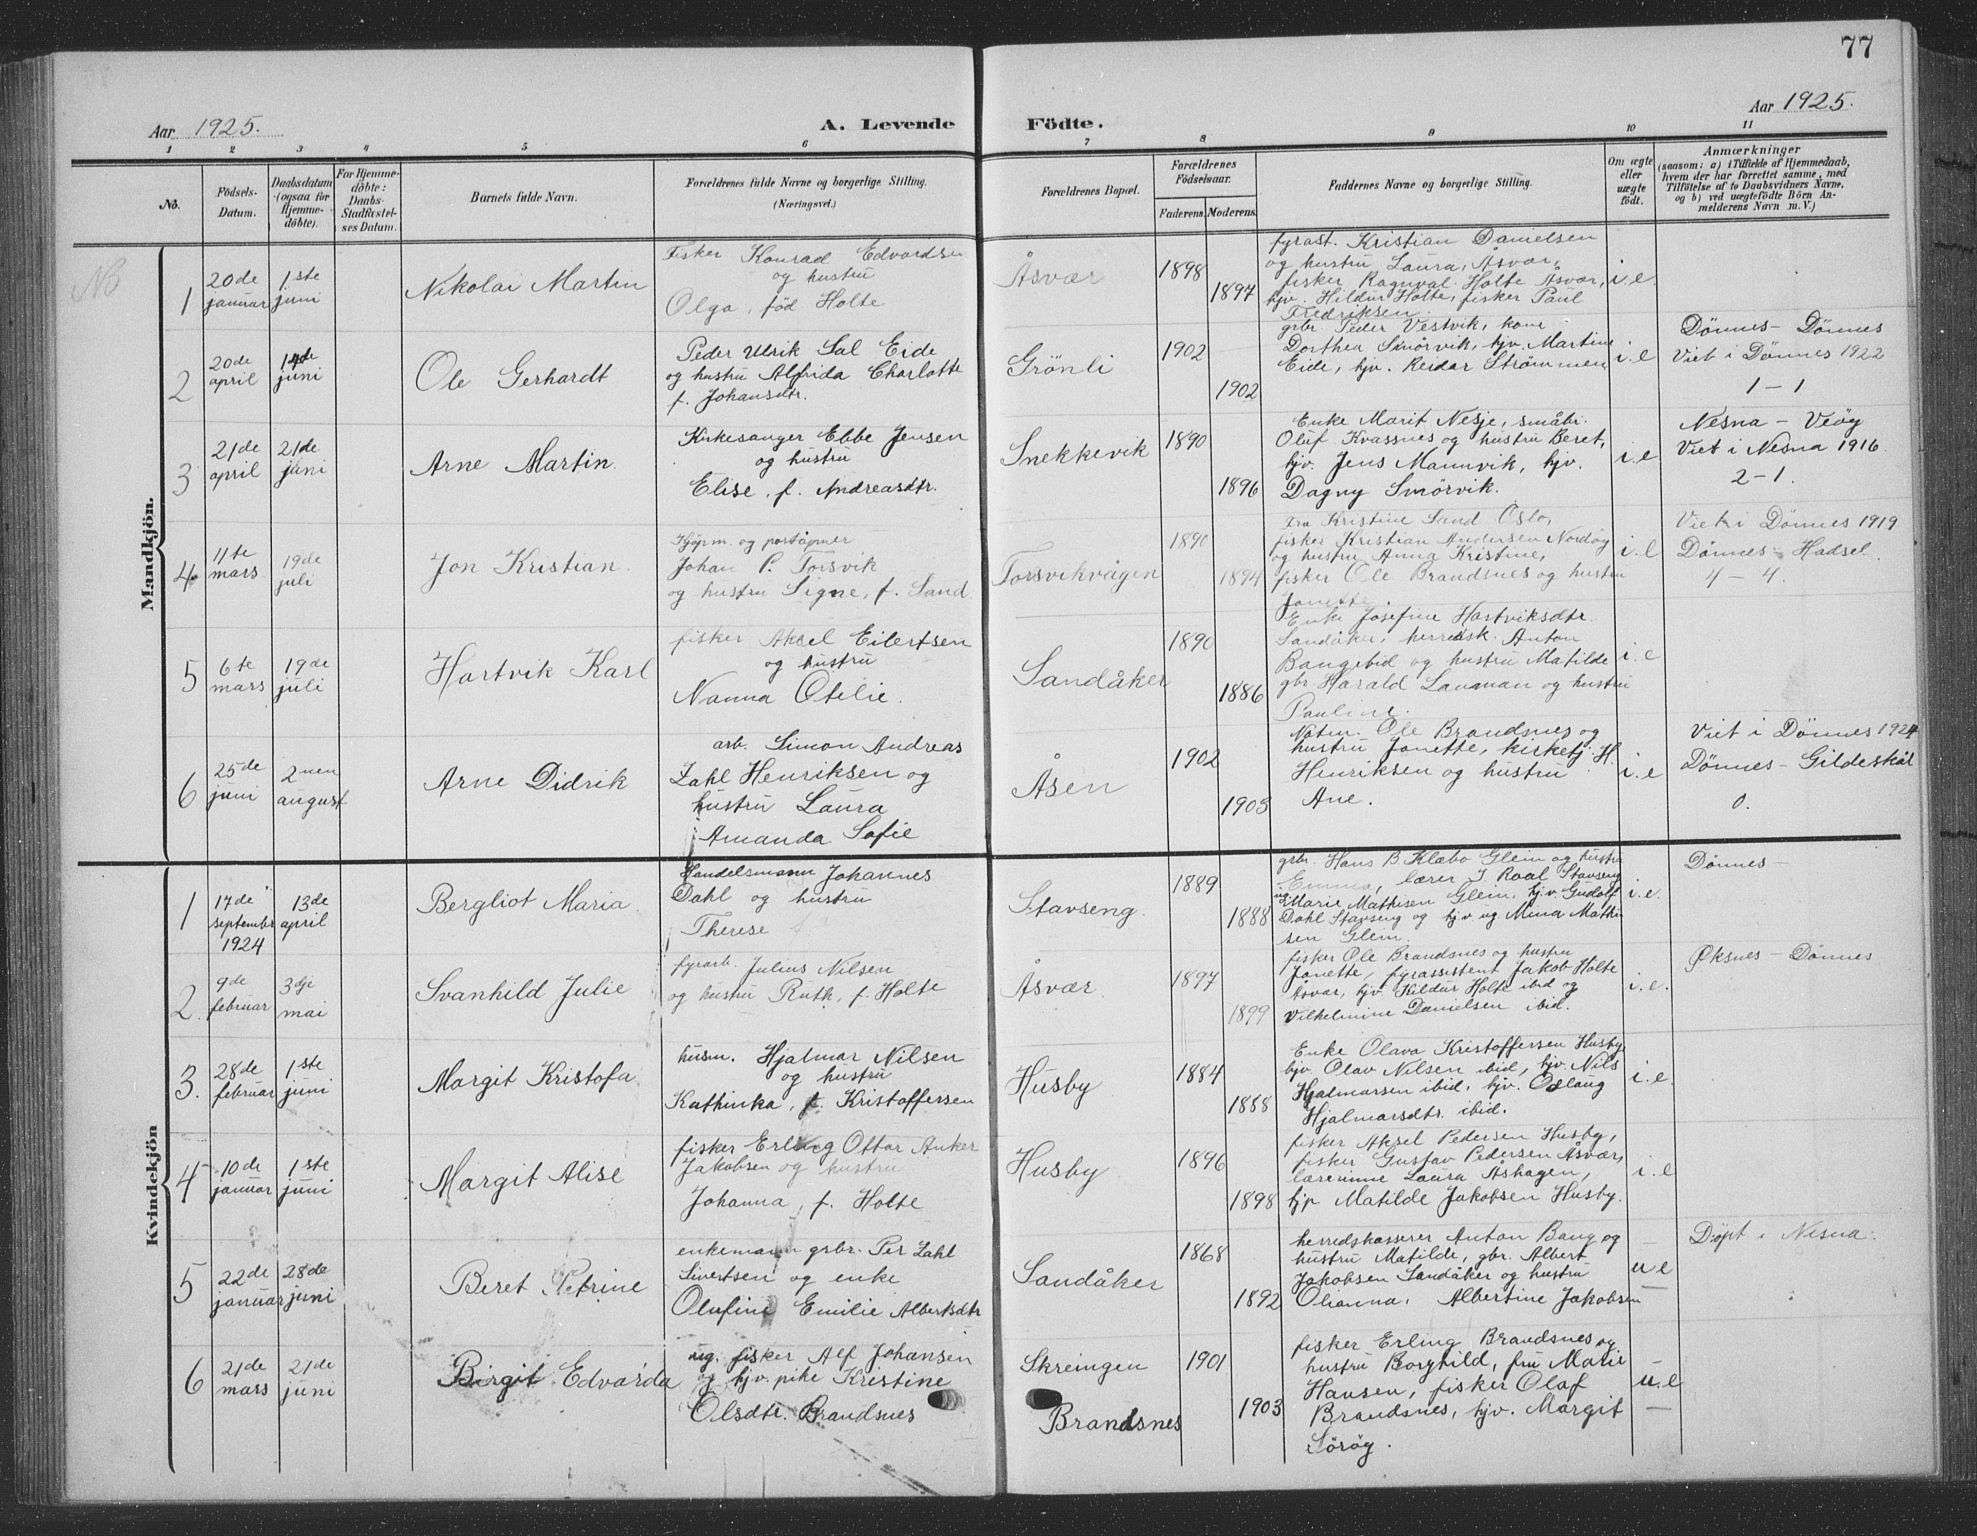 77
Aar 1925.
A. Levende Födte.
Aar 1925.
1 2 3 4 5 6 7 8 9 10 11
No.
Födsels-
Datum.
Daabsdatum
(ogsaa for
Hjemme-
döbte).
For Hjemme-
döbte:
Daabs-
Stadfæstel-
ses Datum.
Barnets fulde Navn.
Forældrenes fulde Navne og borgerlige Stilling.
(Næringsvei.)
Forældrenes Bopæl.
Forældrenes
Födselsaar.
Faderens. Moderens.
Faddernes Navne og borgerlige Stilling.
Om ægte
eller
uægte
födt.
Anmærkninger
(saasom: a) i Tilfælde af Hjemmedaab,
hvem der har forrettet samme, med
Tilföielse af to Daabsvidners Navne,
og b) ved uægtefödte Börn An-
melderens Navn m. V.)
Mandkjön.
NB
1
20de
januar
1ste
juni
Nikolai Martin
Fisker Konrad Edvardsen
og hustru
Olga, fød Holte
Åsvær
1898
1897
fyrast. Kristian Danielsen
og hustru Laura, Åsvær,
fisker Ragnval Holte Åsvær,
hjv. Hildur Holte, fisker Paul
Fredriksen.
i.e.
2
20de
april
14de
juni
Ole Gerhardt
Peder Ulrik Sal Eide
og hustru Alfrida Charlotte
f. Johansdtr.
Grönli
1902
1902
grbr. Peder Vestvik, kone
Dorthea Smörvik, hjv. Martine
Eide, hjv. Reidar Strømmen
i.e
Dönnes - Dönnes
Viet i Dönnes 1922
1-1
3
21de
april
21de
juni
Arne Martin.
Kirkesanger Ebbe Jensen
og hustru
Elise, f. Andreasdtr.
Snekkevik
1890
1896
Enke Marit Nesje, småbr.
Oluf Kvassnes og hustru Beret,
hjv. Jens Mannvik, hjv.
Dagny Smörvik.
i.e
Nesna - Veöy
Viet i Nesna 1916.
2-1.
4
11te
mars
19de
juli
Jon Kristian.
Kjöpm. og poståpner
Johan P. Forsvik
og hustru Signe, f. Sand.
Forsvikvågen
1890
1894
Fru Kristine Sand Oslo,
fisker Kristian Andersen Nordöy
og hustru Anna Kristine,
fisker Ole Brandsnes og hustru
Janette.
i.e
Viet i Dönnes 1919
Dönnes - Hadsel.
4-4.
5
6te
mars
19de
juli
Hartvik Karl
fisker Aksel Eilertsen
og hustru
Nanna Otilie.
Sandåker
1890
1886
Enke Josefine Hartviksdtr.
Sandåker, herredsk. Anton
Bangebid og hustru Matilde
gbr. Harald Lauman og hustru
Pauline.
i.e
6
25de
juni
2nen
august
Arne Didrik
arb. Simon Andreas
Zahl Henriksen og
hustru Laura
Amanda Sofie
Åsen
1902
1903
Ole Brandsnes og
hustru Janette, kirketj. H.
Henriksen og hustru
Ane.
i.e
Viet i Dönnes 1924
Dönnes - Gildeskål
0.
Kvindekjön
1
17de
september
1924
13de
april
Bergliot Maria
Handelsmann Johannes
Dahl og hustru
Therese
Stavseng.
1889
1888
grbr. Hans B. Klæbo Glein og hustru
Emma, lærer J. Roal Stavseng
Marie Mathisen Glein, hjv. Gudolf
Dahl Stavseng og hjv. ug. Mina Mathi
sen Glein.
i.e.
Dönnes -
2.
9de
februar
3dje
mai
Svanhild Julie
fyrarb. Julius Nilsen
og hustru Ruth, f. Holte
Åsvær.
1897
1899
fisker Ole Brandsnes og hustru
Janette, fyrassistent Jakob Holte
Åsvær, hjv. Hildur Holte ibid og
Vilhelmine Danielsen ibid.
i.e.
Øksnes - Dönnes
3.
28de
februar
1ste
juni
Margit Kristofa.
husm. Hjalmar Nilsen
og hustru
Kathinka, f. Kristoffersen
Husby
1884
1888
Enke Olava Kristoffersen Husby,
hjv. Olav Nilsen ibid, hjv. Nils
Hjalmarsen ibid, hjv. Oslaug
Hjalmarsdtr. ibid.
i.e.
4
10de
januar
1ste
juni
Margit Alise
fisker Erling Ottar Anker
Jakobsen og hustru
Johanna, f. Holte
Husby
1896
1898
fisker Aksel Pedersen Husby,
fisker Gustav Pedersen Åsvær,
lærerinne Laura Åshagen,
hjp Matilde Jakobsen Husby.
i.e
5
22de
januar
28de
juni
Beret Petrine
enkemann grbr. Per Zahl
Sivertsen og enke
Olufine Emilie Albertsdtr
Sandåker
1868
1892
herredskasserer Anton Bang og
hustru Matilde, gbr. Albert
Jakobsen Sandåker og hustru
Olianna, Albertine Jakobsen
u e
Döpt i Nesna.
6
21de
mars
21de
juni
Birgit Edvarda
ug. fisker Alf Johansen
og hjv. pike Kristine
Olsdtr. Brandsnes
Skreingen
Brandsnes
1901
1903
fisker Erling Brandsnes og
hustru Borghild, fru Marie
Hansen, fisker Olaf
Brandsnes, hjv. Margit
Söröy.
u.e